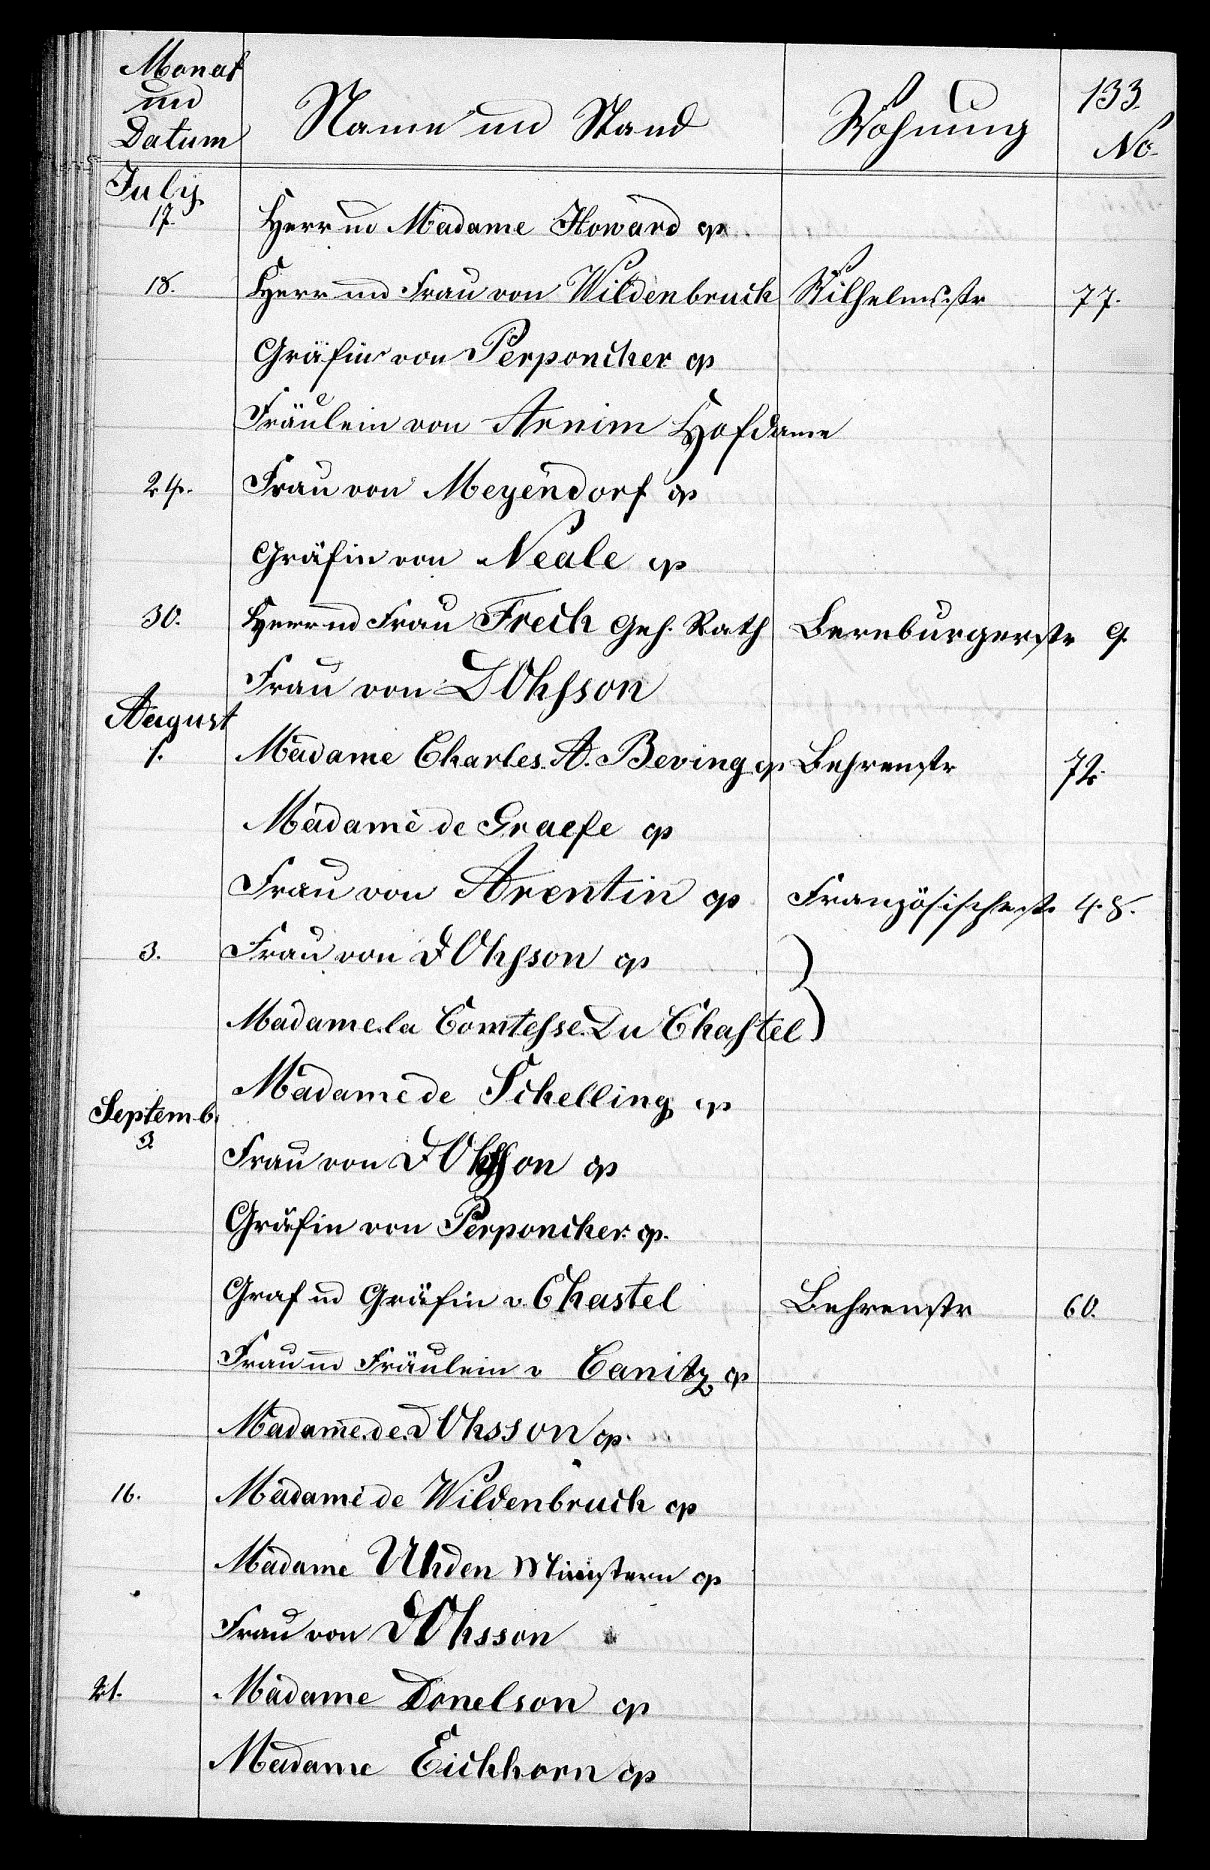 133.
Monat
und
Datum
Name und Stand
Wohnung
No.
July
17. Herr und Madame Howard cp
18. Herr und Frau von Wildenbruck Wilhelmsstr 77.
Gräfin von Perponcher cp
Fräulein von Arnim Hofdame
24. Frau von Meyendorf cp
Gräfin von Neale cp
30. Herr und Frau Frech Geh. Rath Bernburgerstr 9.
Frau von DOhsson
August
1. Madame Charles. A. Beving cp Behrenstr 72.
Madame de Graefe cp
Frau von Arentin cp Französischestr. 48.
3. Frau von dOhsson cp
Madame la Comtesse Du Chastel
Madame de Schelling cp
Septemb.
3. Frau von dOhsson cp
Gräfin von Perponcher cp.
Graf und Gräfin v. Chastel Behrenstr 60.
Frau und Fräulein v Canitz cp
Madame. de. dOhsson cp.
16. Madame de Wildenbruch cp
Madame Uhden Ministern cp
Frau von dOhsson
21. Madame Donelson cp
Madame Eichhorn cp